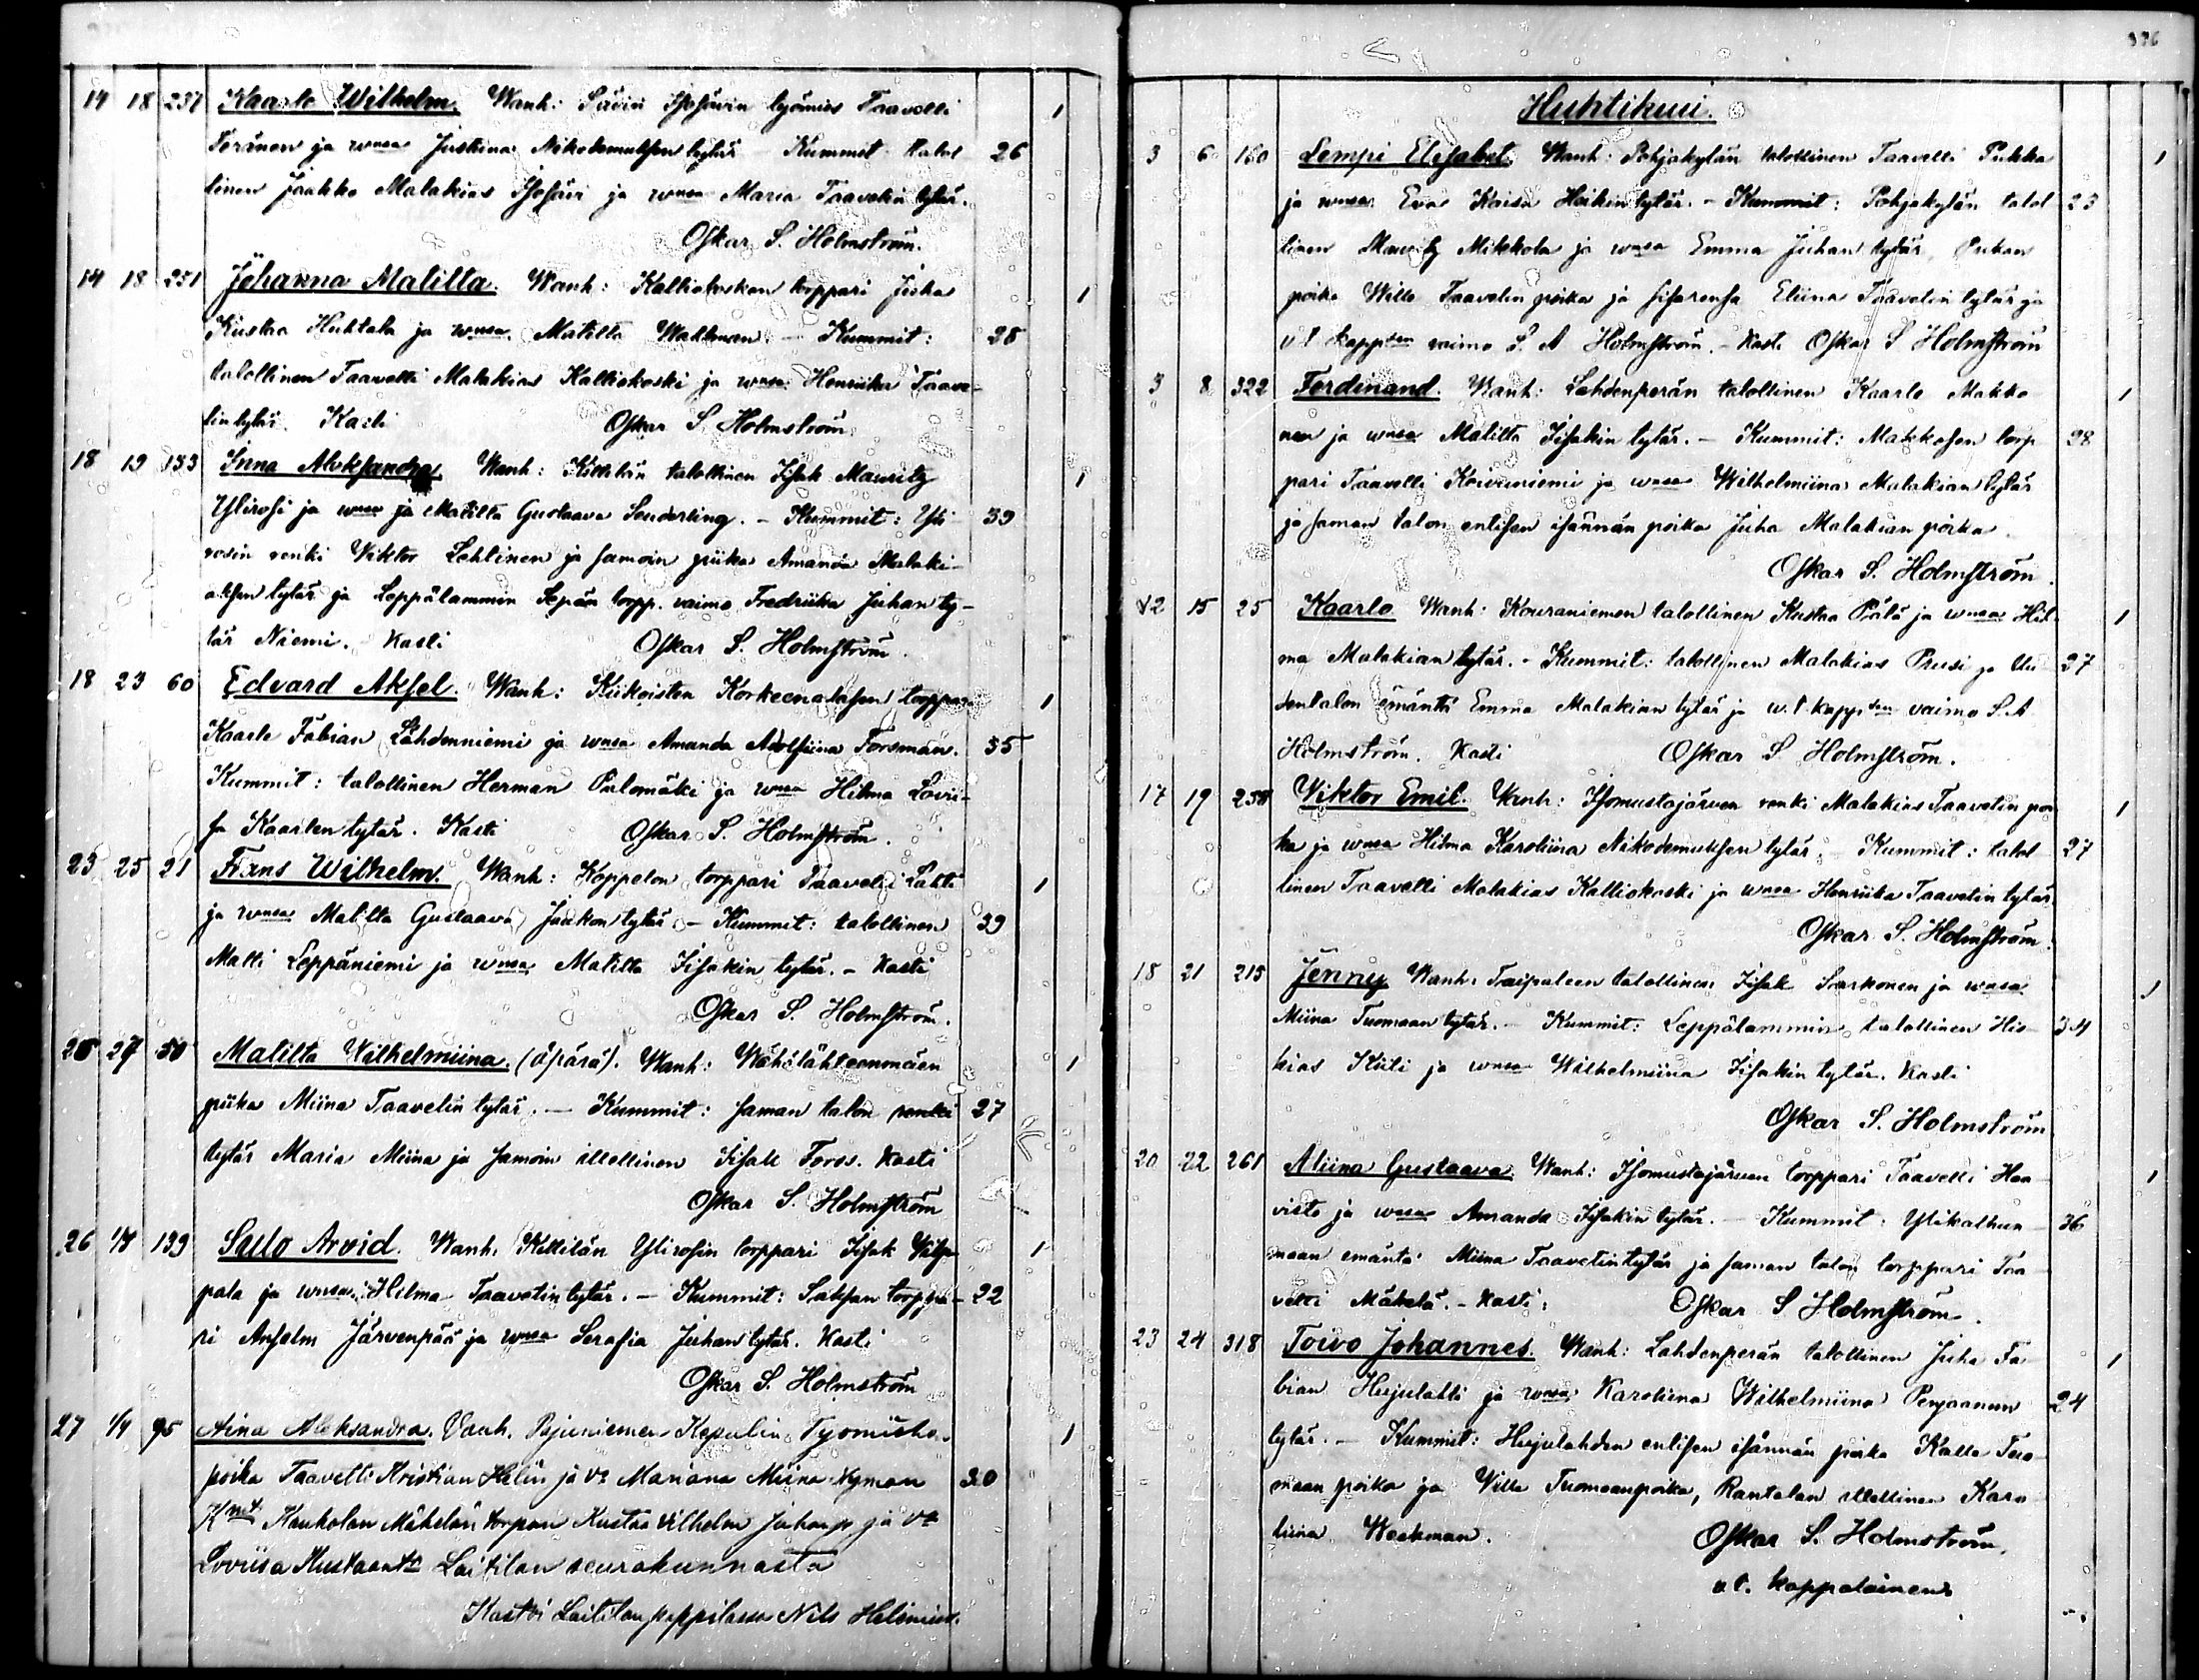 14 18 237 Kaarlo Wilhelm. Wanh: Sävin Isosävin työmies Taavetti
Teränen ja wmsa Justiina Nikodemuksen tytär Kummit talol 26
linen Jaakko Malakias Isosävi ja wmsa Maria Taavetin tytär.
Oskar S. Holmström.
14 18 251 Johanna Matilta. Wanh: Kalliokosken torppari Juha
Kustaa Huhtala ja wmsa Matilta Wahlman. – Kummit: 28
talollinen Taavetti Malakias Kalliokoski ja wmsa Henriika Taave-
tin tytär. Kasti Oskar S. Holmström.
18 19 133 Inna Aleksandra. Wanh: Killilän talollinen Iisak Mauritz
Ylirosi ja wmsa ja Matilta Gustaava Sonderling. – Kummit: Yli 39
rosin renki Viktor Lehtinen ja samoin piika Amanda Malaki-
aksen tytär ja Leppälammin Sepän torpp. vaimo Fredriika Juhan ty-
tär Niemi. Kasti Oskar S. Holmström.
18 23 60 Edvard Aksel. Wanh: Kiikoisten Korkeenalasen torppari
Kaarle Fabian Lähdenniemi ja wmsa Amanda Adolfiina Forsman. 35
Kummit: talollinen Herman Palomäki ja wmsa Hilma Lovii-
sa Kaarlen tytär. Kasti Oskar S. Holmström.
23 25 21 Frans Wilhelm. Wanh: Koppelon torppari Taavetti Lahti
ja wmsa Matilta Gustaava Jaakon tytär – Kummit: talollinen 39
Matti Leppäniemi ja wmsa Matilta Iisakin tytär. – Kasti
Oskar S. Holmström.
27 50 Matilta Wilhelmiina. (äpärä). Wanh: Wähälähteenmäen
piika Miina Taavetin tytär. – Kummit: saman talon 27
tytär Maria Miina ja samoin itellinen Iisak Foros. Kasti
Oskar S. Holmström
26 1/4 139 Sulo Arvid. Wanh. Killilän Ylirosin torppari Iisak
pala ja wmsa Hilma Taavetin tytär. – Kummit: Saksan torppa- 22
ri Anselm Järvenpää ja wmsa Serafia Juhan tytär. Kasti
Oskar S. Holmström
27 1/4 95 Aina Aleksandra. Vanh. Pajuniemen Kepulin
poika Taavetti Kristian Helin ja v. Mariana Miina Nyman 30
Kmit. Kaukolan Mäkelän torpari Kustaa Vilhelm Juhanp. ja va
Loviisa Kustaant. Laitilan seurakunnasta
Kastoi Laitilan pappilassa Nils Helenius.
376
Huhtikuu.
3 6 160 Lempi Elisabet. Wanh: Pohjakylän talollinen Taavetti Pukka
ja wmsa Eva Kaisa Heikin tytär. – Kummit: Pohjakylän talol 23
linen Mauritz Mikkola ja wmsa Emma Juhan tytär, Pukan
poika Wille Taavetin poika ja sisarensa Eliina Taavetin tytär ja
v.t. kappsen vaimo S. A Holmström. – Kasti Oskar S Holmström
3 8 322 Ferdinand. Wanh: Lahdenperän talollinen Kaarlo Makko
nen ja wmsa Matilta Iisakin tytär. – Kummit: Makkosen torp 28
pari Taavetti Koivuniemi ja wmsa Wilhelmiina Malakian tytär
ja saman talon entisen isännän poika Juha Malakian poika.
Oskar S. Holmström.
12 15 25 Kaarlo Wanh: Kouraniemen talollinen Kustaa Pälä ja wmsa Hil
ma Malakian tytär. – Kummit: talollinen Malakias Prusi ja Uu 27
dentalon emäntä Emma Malakian tytär ja w.t. kappsen vaimo S. A
Holmström. Kasti Oskar S Holmström.
17 19 258 Viktor Emil. Wanh: Isomustajärven renki Malakias Taavetin poi
ka ja wmsa Hilma Karoliina Nikodemuksen tytär. – Kummit: talol 27
linen Taavetti Malakias Kalliokoski ja wmsa Henriika Taavetin tytär
Oskar S. Holmström.
18 21 215 Jenny Wanh: Taipaleen talollinen Iisak Sarkonen ja wmsa
Miina Tuomaan tytär. – Kummit: Leppälammin talollinen His 34
kias Kiili ja wmsa Wilhelmiina Iisakin tytär. Kasti
Oskar S. Holmström
20 22 261 Aliina Gustaava. Wanh: Isomustajärven torppari Taavetti Haa
visto ja wmsa Amanda Iisakin tytär. – Kummit: Ylikalhun 36
maan emäntä Miina Taavetin tytär ja saman talon torppari Taa
vetti Mäkelä. – Kasti: Oskar S Holmström.
23 24 318 Toivo Johannes. Wanh: Lahdenperän talollinen Juha Fa
bian Hujulahti ja wmsa Karoliina Wilhelmiina Penjaamin 24
tytär. – Kummit: Hujulahden entisen isännän poika Kalle Tuo
maan poika ja Ville Tuomaanpoika, Rantalan itellinen Karo
liina Weckman. Oskar S. Holmström,
v.t. kappalainen